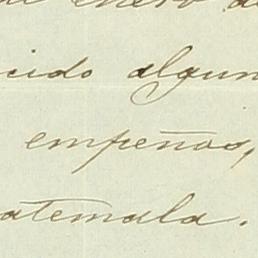 enero d
cido algun
empeños,
atemala.